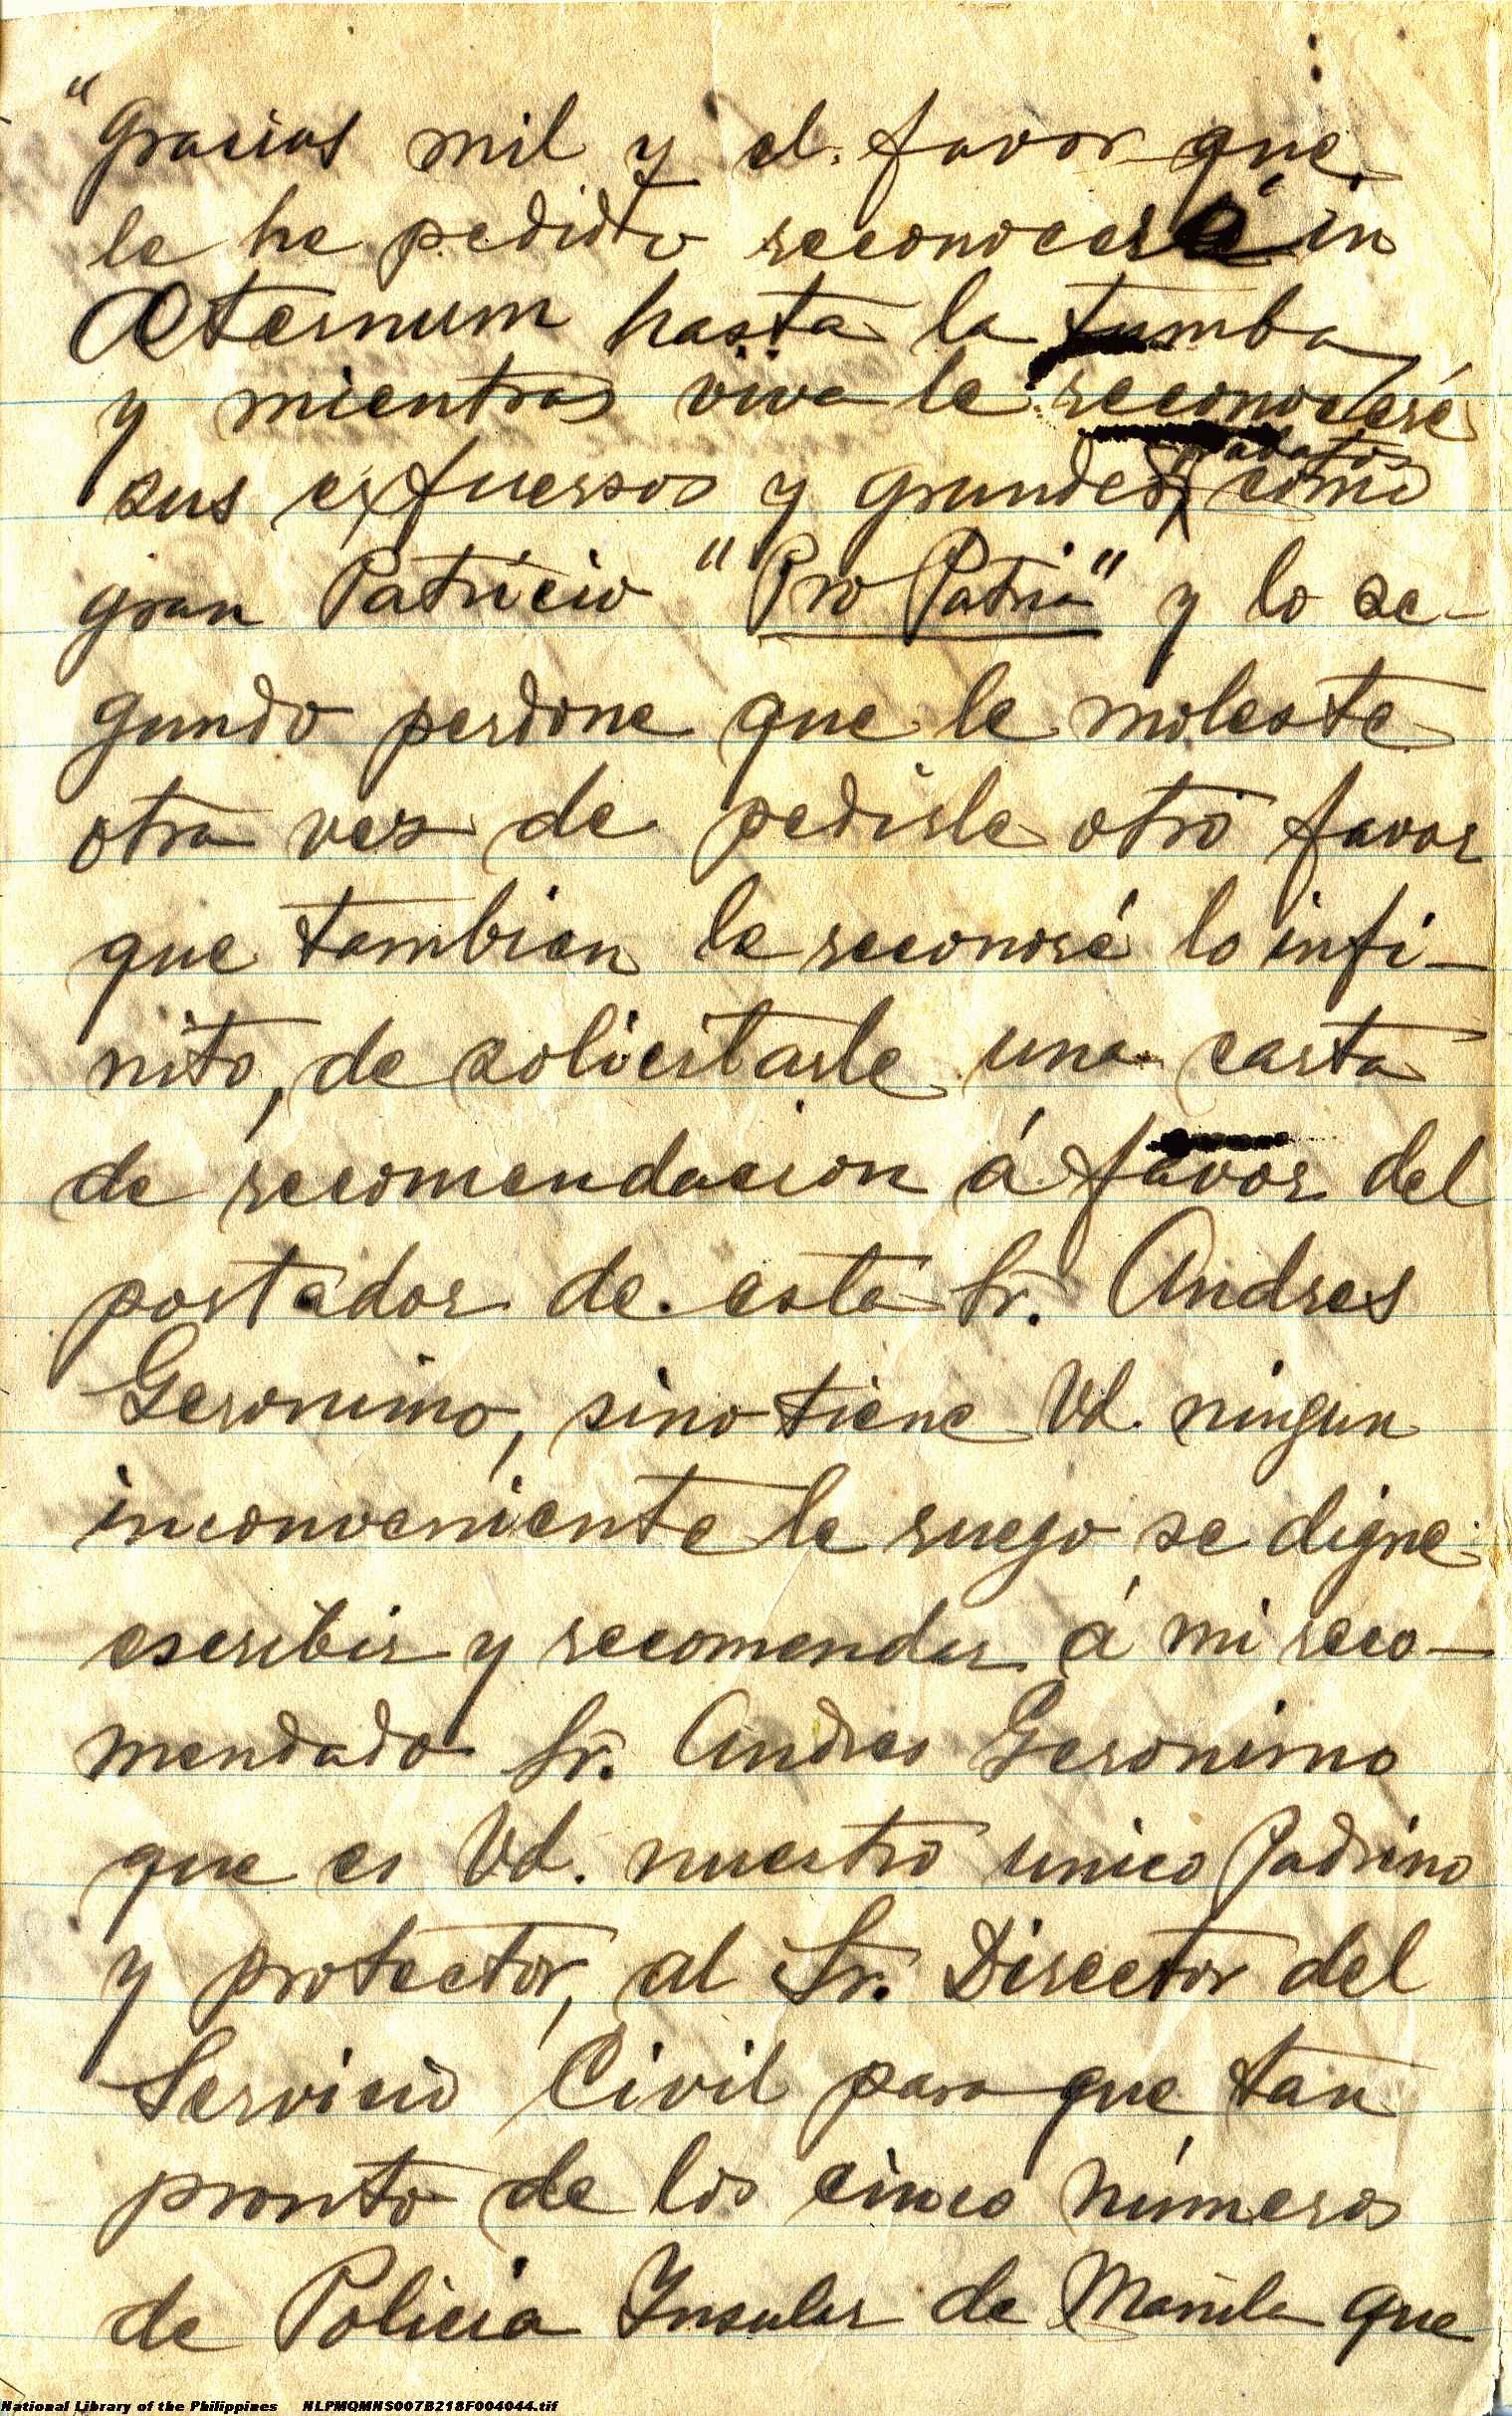 "Gracias mil y el favor que
le he pedido reconoceré in
Æternum hasta la tumba
y mientras viva le reconoceré
sus exfuersos y grandes como
gran Patricio "Pro Patria" y lo se-
gundo perdone que le moleste
otra vez de pedirle otro favor
que tambien le reconosé lo infi-
nito, de solicitarle una carta
de recomendacion á favor del
portador de esta Sr. Andres
Geronimo, sino tiene Vd. ningun
inconveniente le ruego se digne
escribir y recomendar á mi reco-
mendado Sr. Andres Geronimo
que es Vd. nuestro unico Padrino
y protector, al Sr. Director del
Servicio Civil para que tan
pronto de los cinco números
de Policia Insular de Manila que
National Library of the Philippines NLPMQMNS007B218F004044.tif